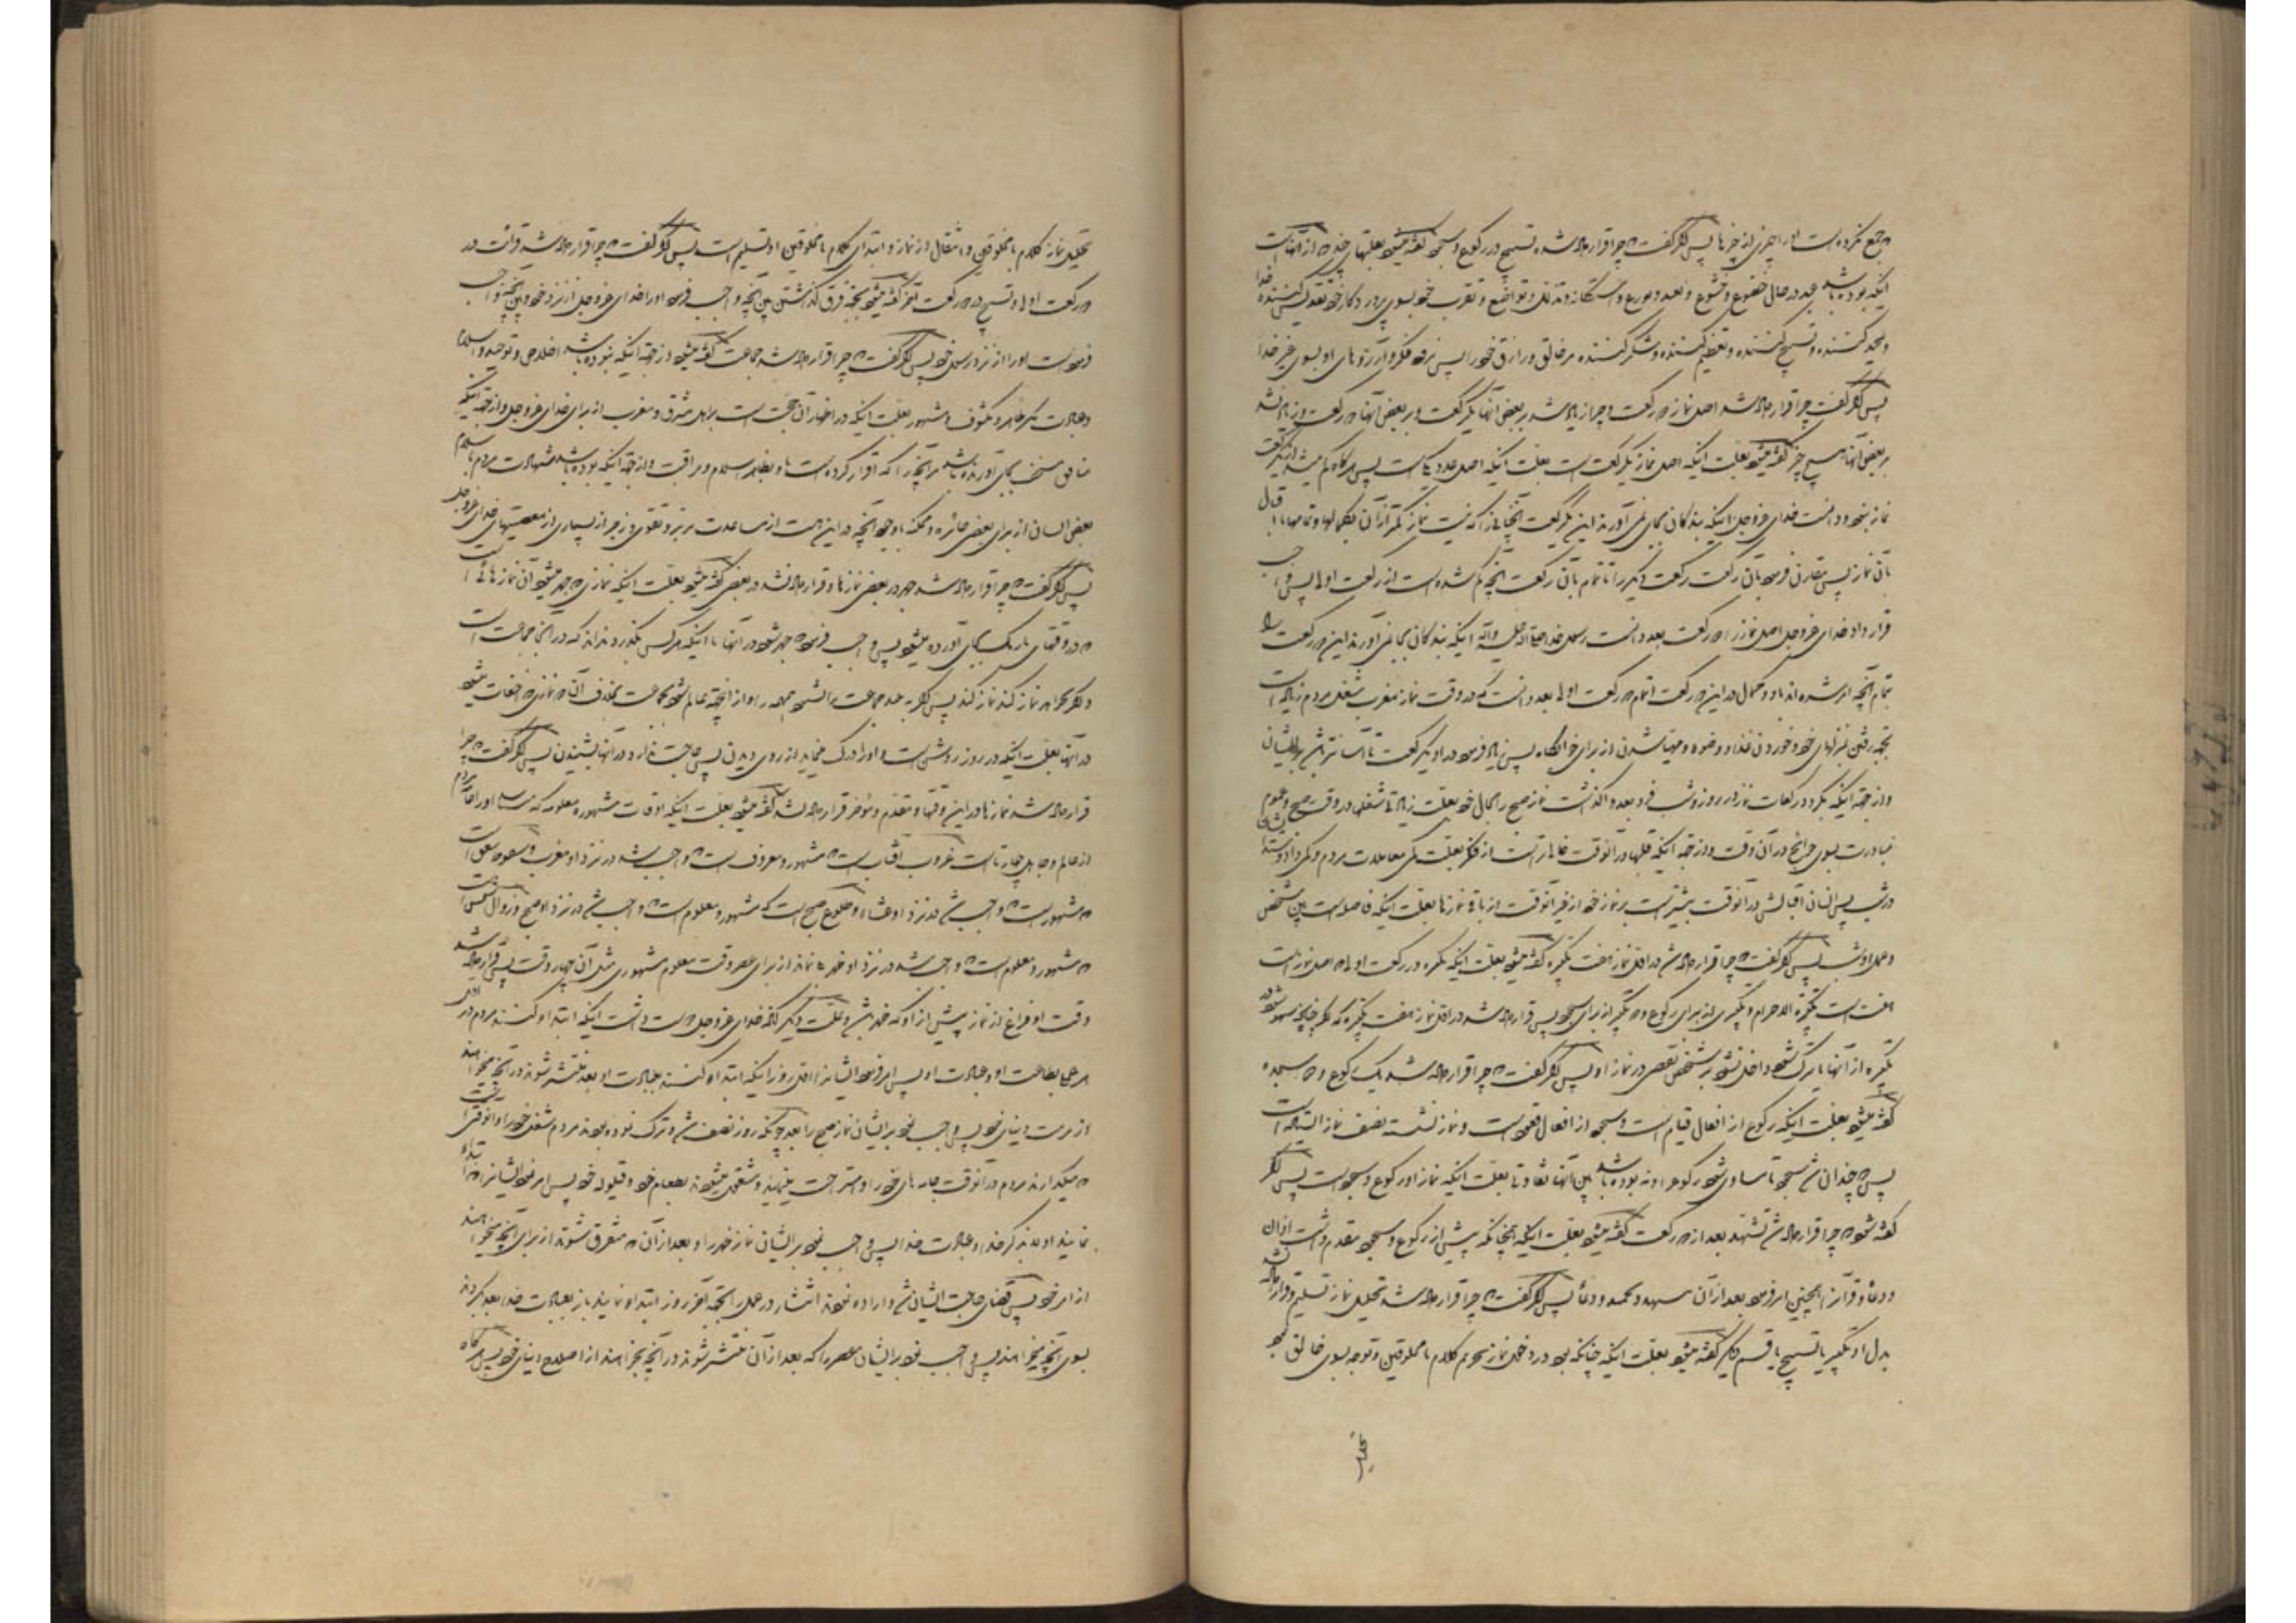 جمع نکرده است او را چیزی از چیزها پس اگر گفت چرا قرار داده شده تسبیح در رکوع و سجود گفته میشود بعلتهای چند از آنهاست
اینکه بوده باشد عبد در حال خضوع و خشوع و تعبد و تورع و استکانه و تذلل و تواضع و تقرب خود بسوی پروردگار خود تقدیس کننده خدا
و تمجید کننده و تسبیح کننده و تعظیم کننده و شکر کننده مر خالق و رازق خود را پس نرود فکر و آرزوهای او بسوی غیر خدا
پس اگر گفت چرا قرار داده شد اصل نماز دو رکعت و چرا زیاد شد بر بعض آنها یک رکعت و بر بعض آنها دو رکعت و زیاد نشد
بر بعض آنها هیچ چیز گفته میشود بعلت اینکه اصل نماز یک رکعت است بعلت اینکه اصل عدد یک است پس هرگاه کم میشد از یک رکعت
نماز نبود و دانست خدای عزوجل اینکه بندگان بجای نمی آورند این یک رکعت آنچنانی را که نیست نماز کمتر از آن بکمالها و تمامها با اقبال
بآن نماز پس مقارن فرمود بآن رکعت رکعت دیگر را تا تمام بآن رکعت آنچه کم شده است از رکعت اولی پس واجب
قرار داد خدای عزوجل اصل نماز را دو رکعت بعد دانست رسول خدا صلی الله علیه و آله اینکه بندگان بجا نمی آورند این دو رکعت را
بتمام آنچه امر شده اند باو و کمال در این دو رکعت اتمام دو رکعت اولی بعد دانست که در وقت نماز مغرب شغل مردم زیاد است
بجهة رفتن بمنزلهای خود و خوردن غذا و وضوء و مهیا شدن از برای خوابگاه پس زیاد فرمود در او یک رکعت تا آسان تر باشد بر ایشان
و از جهة اینکه بگردد رکعات نماز در روز و شب فرد بعد واگذاشت نماز صبح را بحال خود بعلت زیادتی شغلها در وقت صبح و عموم
مبادرت بسوی حوائج در آن وقت و از جهة اینکه قلبها در آنوقت خالی تر است از فکر بعلت کمی معاملات مردم و کمی داد و ستد ایشان
در شب پس انسان اقبالش در آنوقت بیشتر است بر نماز خود از غیر آنوقت از باقی نمازها بعلت اینکه فاصله است بین شخص
و عمل او شب پس اگر گفت چرا قرار داده شد در اول نماز هفت تکبیره گفته میشود بعلت اینکه تکبیره در رکعت اولی که اصل نماز است
هفت است تکبیرة الاحرام و تکبیری از برای رکوع و دو تکبیر از برای سجود پس قرار داده شد در اول نماز هفت تکبیره که اگر چنانچه سهو شود در
تکبیره از آنها یا ترک شود داخل نشود بر شخص نقص در نماز او پس اگر گفت چرا قرار داده شد یک رکوع و دو سجده
گفته میشود بعلت اینکه رکوع از افعال قیام است و سجود از افعال قعود است و نماز نشسته نصف نماز ایستاده است
پس دو چندان شد سجود تا مساوی شود رکوع را و نه بوده باشد بین آنها تفاوت بعلت اینکه نماز او رکوع و سجود است پس اگر
گفته شود چرا قرار داده شد تشهد بعد از دو رکعت گفته میشود بعلت اینکه همچنانکه پیش از رکوع و سجود مقدم داشت اذان
و دعا و قرآن را همچنین امر فرمود بعد از آن بتشهد و تحمید و دعا پس اگر گفت چرا قرار داده شد تحلیل نماز تسلیم و قرار داده نشد
بدل او تکبیر یا تسبیح یا قسم دیگر گفته میشود بعلت اینکه چنانکه بود در دخول نماز تحریم کلام با مخلوقین و توجه بسوی خالق بود
تحلیل
تحلیل نماز کلام با مخلوقین و انتقال از نماز و ابتدای کلام با مخلوقین او تسلیم است پس اگر گفت چرا قرار داده شد قرائت در
دو رکعت اولی و تسبیح در دو رکعت آخر گفته میشود بجهة فرق گذاشتن بین آنچه واجب فرمود او را خدای عزوجل از نزد خود و بین آنچه واجب
فرموده است او را از نزد رسول خود پس اگر گفت چرا قرار داده شد جماعت گفته میشود از جهة اینکه نبوده باشد اخلاص و توحید و اسلام
و عبادت مگر ظاهر و مکشوف و مشهور بعلت اینکه در اظهار آن حجت است بر اهل شرق و مغرب از برای خدای عزوجل و از جهة اینکه
منافق مستخف بجای آورنده باشد مر آنچیز را که اقرار کرده است باو بظاهر اسلام و مراقبت و از جهة اینکه بوده باشد شهادات مردم باسلام
بعض ایشان از برای بعض جائزه و ممکنه با وجود آنچه در این هست از مساعدت بر بر و تقوی و زجر از بسیاری از معصیتهای خدای عزوجل
پس اگر گفت چرا قرار داده شد جهر در بعض نمازها و قرار داده نشد در بعض گفته میشود بعلت اینکه نمازی که جهر میشود آن نمازهائی است
که در وقتهای تاریک بجای آورده میشود پس واجب فرمود جهر شود در آنها تا اینکه هر کس بگذرد بداند که در اینجا جماعت است
و اگر بخواهد نماز کند نماز کند
در آنها بعلت اینکه در روز روشنی است و او را درک مینماید از روی دیدن پس حاجت ندارد در آنها بشنیدن پس اگر گفت چرا
قرار داده شد نمازها در این وقتها و مقدم و مؤخر قرار داده نشد گفته میشود بعلت اینکه اوقات مشهوره معلومه که میرسد او را تمام مردم
از عالم و جاهل چهارتاست غروب آفتاب است که مشهور و معروف است واجب شد در نزد او مغرب و سقوط شفق است
که مشهور است واجب شد در نزد او عشاء و طلوع صبح است که مشهور و معلوم است واجب شد در نزد او صبح و زوال شمس است
که مشهور و معلوم است واجب شد در نزد او ظهر و نماند از برای عصر وقت معلوم مشهوری مثل آن چهار وقت پس قرار داده شد
وقت او فراغ از نماز پیش از او که ظهر باشد و علت دیگر آنکه خدای عزوجل دوست داشت اینکه ابتدا کنند مردم در اول
هر عملی بطاعت او و عبادت او پس امر فرمود ایشان را اول روز اینکه ابتدا کنند بعبادت او بعد منتشر شوند در آنچه میخواهند
از مرمت دنیای خود پس واجب نمود بر ایشان نماز صبح را بعد چونکه روز نصف شد و ترک نموده بودند مردم شغل خود را و آنوقتی است
که میگذارند مردم در آنوقت جامه های خود را و استراحت مینمایند و مشغول میشوند بطعام خود و قیلوله خود پس امر نمود ایشان را که ابتدا
نمایند اولا بذکر خدا و عبادت خدا پس واجب نمود بر ایشان نماز ظهر را و بعد از آن که متفرق شوند از برای آنچه میخواهند
از امر خود پس قضای حاجت ایشان شد و اراده نمودند انتشار در عمل را بجهة آخر روز ابتدا نمایند باز بعبادت خدا بعد بگردند
بسوی آنچه میخواهند پس واجب نمود بر ایشان عصر را که بعد از آن منتشر شوند در آنچه بخواهند از اصلاح دنیای خود پس هرگاه